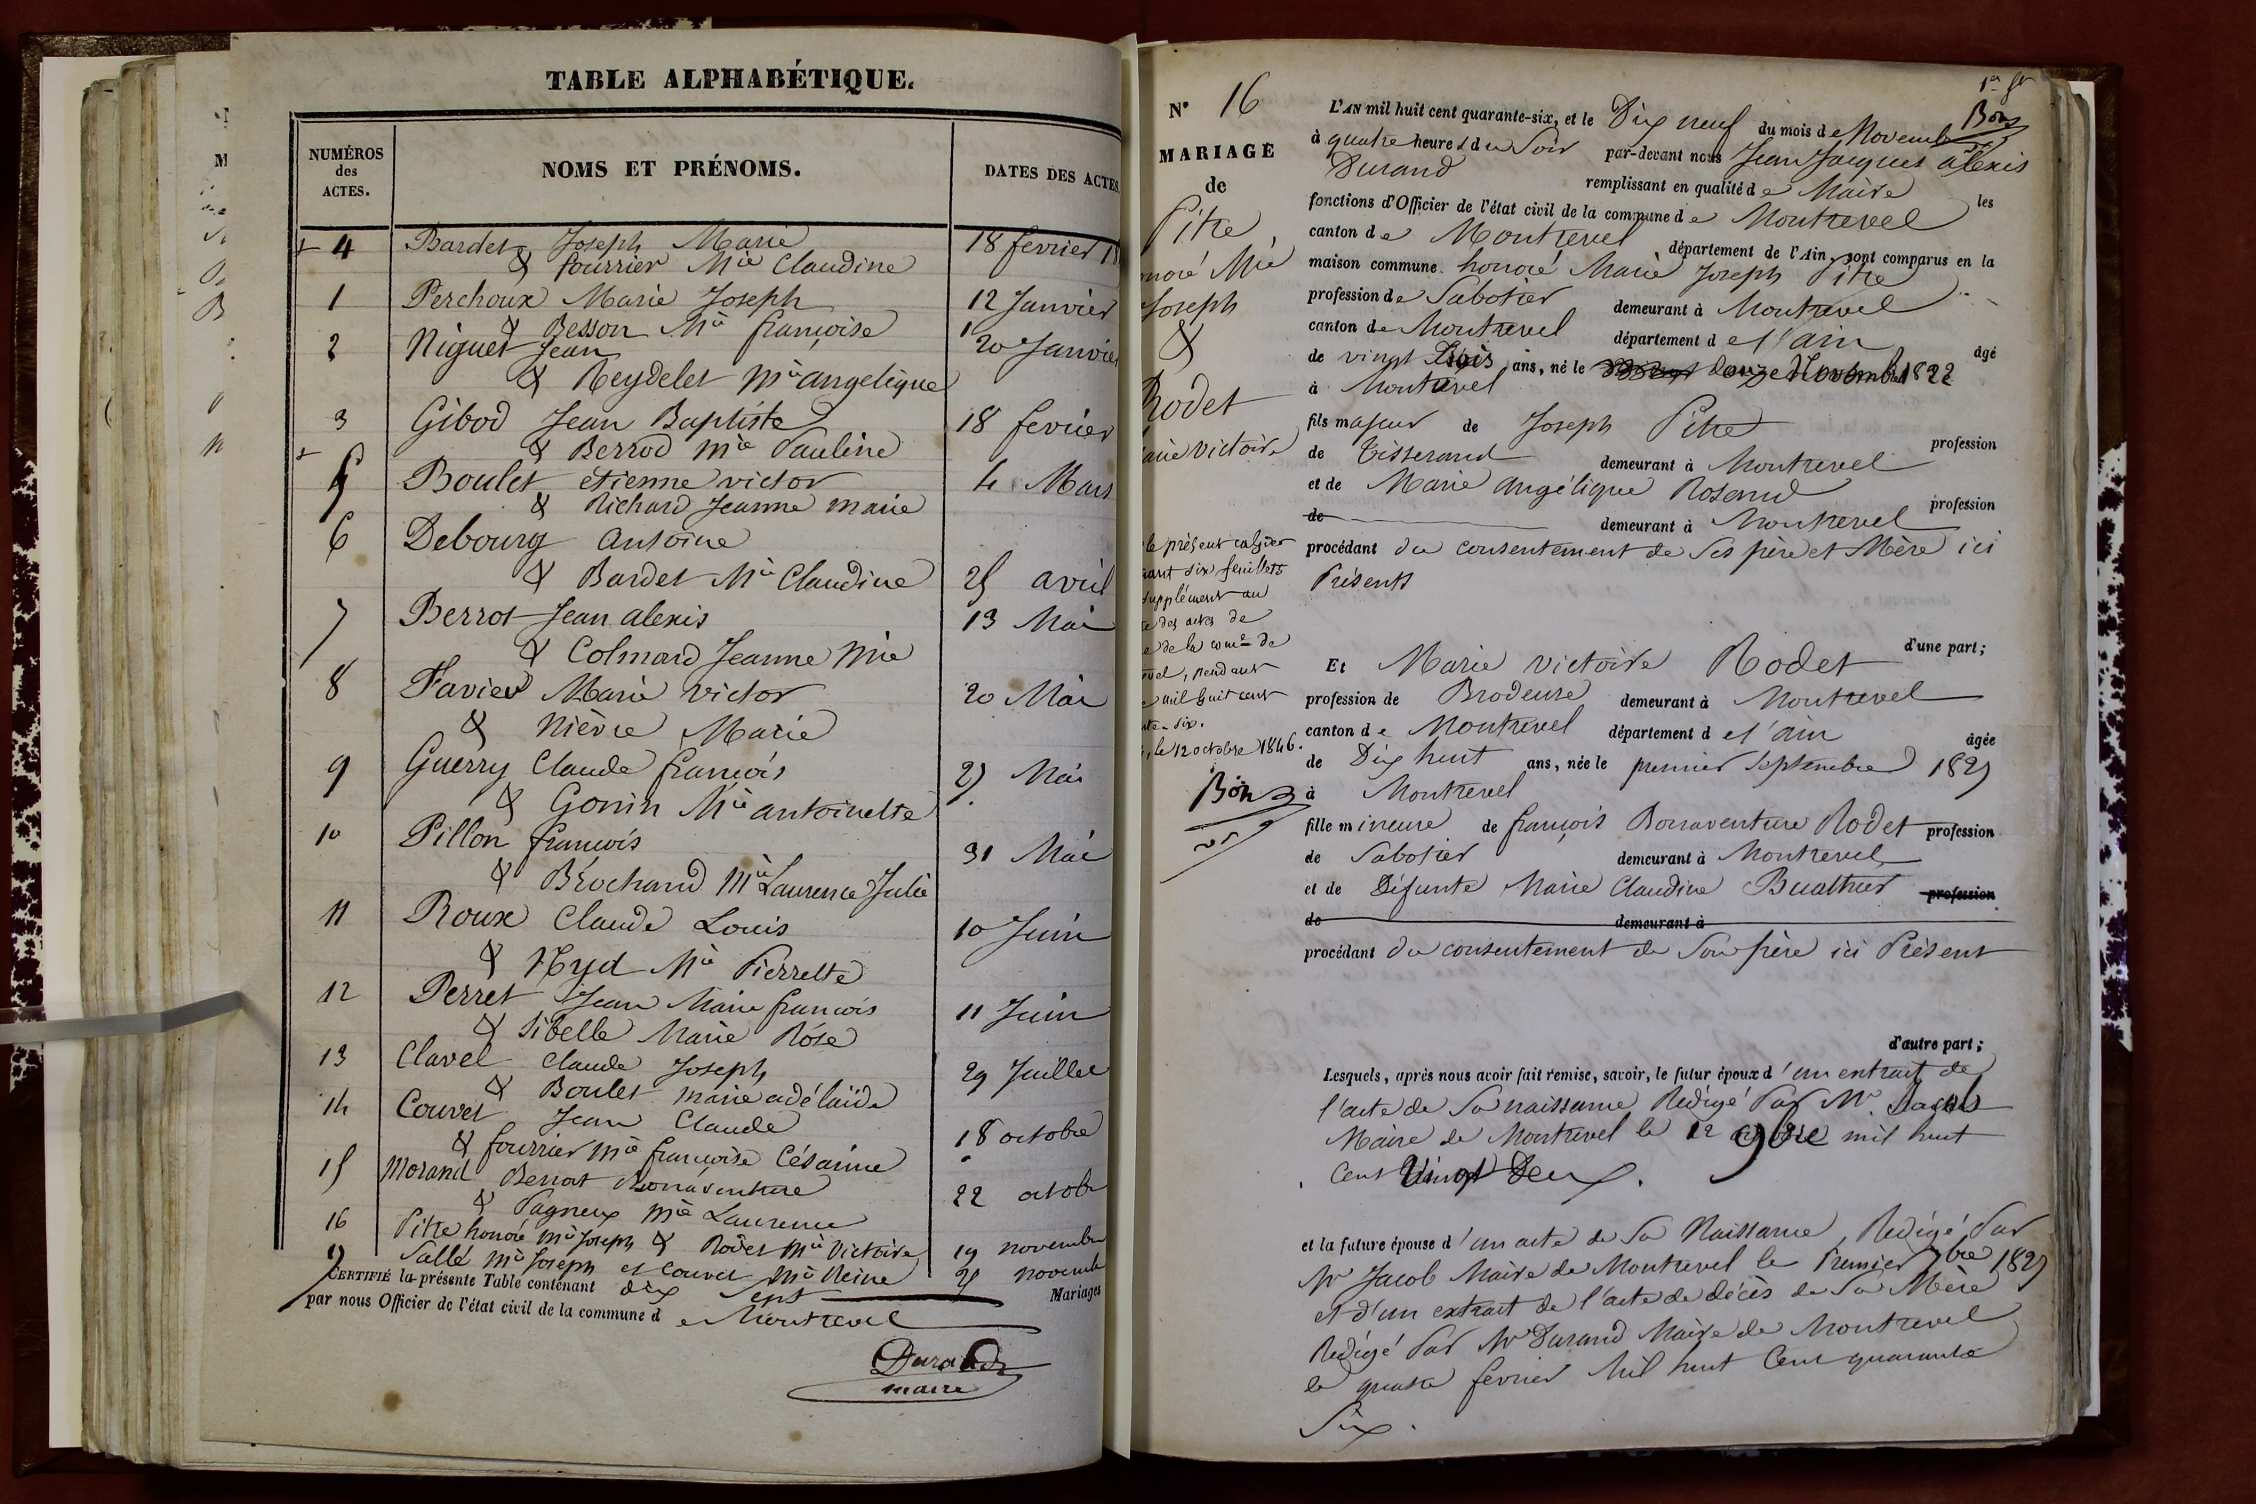 TABLE ALPHABÉTIQUE.
NUMÉROS des ACTES.
NOMS ET PRÉNOMS.
DATES DES ACTES
4 Bardet Joseph Marie 18 fevrier 18
& fourrier Mie Claudine
1 Perchoux Marie Joseph 12 Janvier
& Besson Mie françoise
2 Niguet Jean 20 Janvier
& Reydelet Mie angelique
3 Gibod Jean Baptiste 18 fevrier
& Berrod Mie Pauline
5 Boulet étienne victor 4 Mars
& Richard Jeanne marie
6 Debourg Antoine
& Bardet Mie Claudine 25 avril
7 Berrot Jean alexis 13 Mai
& Colmard Jeanne Mie
8 Favier Marie victor 20 Mai
& Nièvre Marie
9 Guerry Claude françois 27 Mai
& Gonin Mie antoinette
10 Pillon françois 31 Mai
& Brochand Mie Laurence Julie
11 Roux Claude Louis 10 Juin
& Hyd Mie Pierrette
12 Perret Jean Marie françois 11 Juin
& Sibelle Marie Rose
13 Clavel Claude Joseph 29 Juillet
& Boulet marie adélaïde
14 Couvet Jean Claude 18 octobre
& fourrier Mie françoise Césarine
15 Morand Benoit Bonaventure 22 octobr
& Pagneux Mie Laurence
16 Pitre honoré Mie Joseph & Rodet Mie Victoire 19 novembre
17 Sallé Mie Joseph et Couvet Mie Reine 25 novemb
CERTIFIÉ la présente Table contenant dix Sept Mariages
par nous Officier de l'état civil de la commune de Montrevel
Durand
maire
1er ft
Bon
N° 16
MARIAGE
de
Pitre
onoré Mie
Joseph
&
Rodet
arie victoire
le présent cahier
nant six feuillets
supplément au
des actes de
de la comne de
vel, pendant
mil huit cent
te-six.
, le 12 octobre 1846.
Bon
L'AN mil huit cent quarante-six, et le Dix neuf du mois de Novembre
à quatre heures du Soir par-devant nous Jean Jacques alexis
Durand remplissant en qualité de Maire les
fonctions d'Officier de l'état civil de la commune de Montrevel
canton de Montrevel département de l'Ain, sont comparus en la
maison commune. honoré Marie Joseph Pitre
profession de Sabotier demeurant à Montrevel
canton de Montrevel département de l'ain âgé
de vingt Trois ans, né le douze Novembre 1822
à Montrevel
fils majeur de Joseph Pitre profession
de Tisserand demeurant à Montrevel
et de Marie angélique Rosand profession
de demeurant à Montrevel
procédant du consentement de Ses père et Mère ici
Présents
d'une part;
Et Marie victoire Rodet
profession de Brodeuse demeurant à Montrevel
canton de Montrevel département de l'ain âgée
de Dix huit ans, née le premier Septembre 1827
à Montrevel
fille mineure de françois Bonaventure Rodet profession
de Sabotier demeurant à Montrevel
et de Défunte Marie Claudine Buathier profession
de demeurant à
procédant du consentement de Son père ici Présent
d'autre part;
Lesquels, après nous avoir fait remise, savoir, le futur époux d'un extrait de
l'acte de Sa naissance Rédigé Par Mr. Jacob
Maire de Montrevel le 12 9bre mil huit
Cent Vingt Deux.
et la future épouse d'un acte de Sa Naissance, Rédigé Par
Mr Jacob Maire de Montrevel le Premier 7bre 1827
et d'un extrait de l'acte de décès de Sa Mère
Rédigé Par Mr Durand Maire de Montrevel
le quatre fevrier Mil huit Cent quarante
Six.